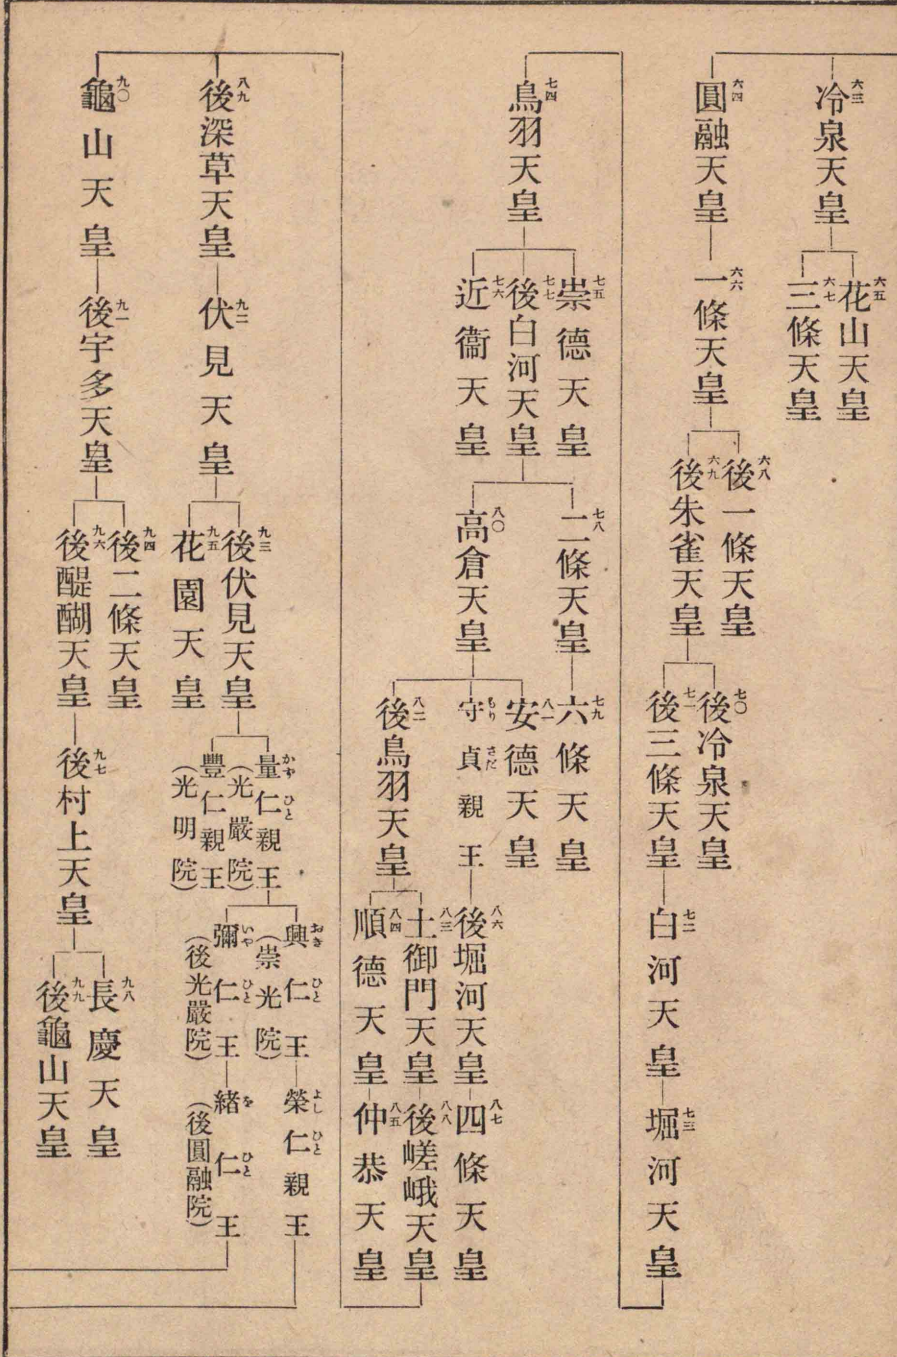 六三
冷泉天皇
六五
花山天皇
六七
三條天皇
六四
圓融天皇
六六
一條天皇
六八
後一條天皇
六九
後朱雀天皇
七〇
後冷泉天皇
七一
後三條天皇
七二
白河天皇
七三
堀河天皇
七四
鳥羽天皇
七五
崇德天皇
七七
後白河天皇
七六
近衞天皇
七八
二條天皇
七九
六條天皇
八〇
高倉天皇
八一
安德天皇
もりさだ
守貞親王
八六
後堀河天皇
八七
四條天皇
八二
後鳥羽天皇
八三
土御門天皇
八八
後嵯峨天皇
八四
順德天皇
八五
仲恭天皇
八九
後深草天皇
九二
伏見天皇
九三
後伏見天皇
かずひと
量仁親王
(光嚴院)
おきひと
興仁王
(崇光院)
よしひと
榮仁親王
いやひと
彌仁王
(後光嚴院)
をひと
緒仁王
(後圓融院)
豐仁親王
(光明院)
九五
花園天皇
九〇
龜山天皇
九一
後宇多天皇
九四
後二條天皇
九六
後醍醐天皇
九七
後村上天皇
九八
長慶天皇
九九
後龜山天皇